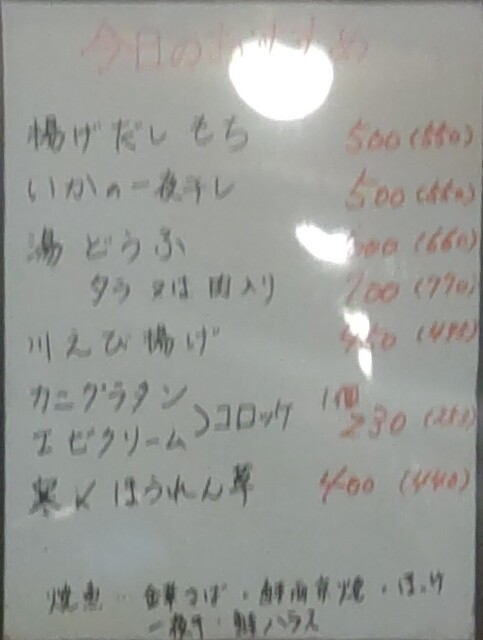 今日のおすすめ
揚げだしもち 500(550)
いかの一夜干し 500(550)
湯どうふ 600(660)
タラ又は肉入り 700(770)
川えび揚げ 450(495)
カニグラタン
エビクリーム >コロッケ 1個 230(253)
寒〆ほうれん草 400(440)
焼魚…鮮さば・鮮西京焼・ほっけ
一夜干・鮭ハラス